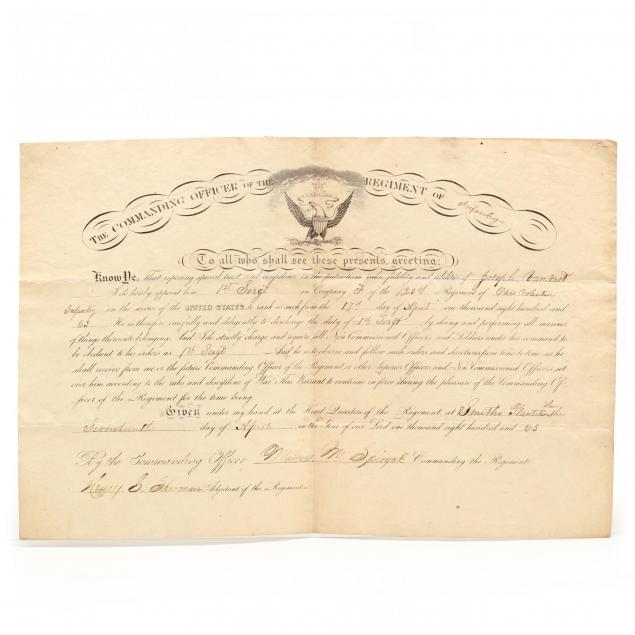 THE COMMANDING OFFICER OF THE REGIMENT OF Infantry
To all who shall see these presents, greeting:
Know Ye, That reposing special trust and confidence in the patriotism, valor, fidelity and abilities of Joseph
I do hereby appoint him 1st Sergt in Company F of the 120th Regiment of Ohio Volunteer
Infantry in the service of the UNITED STATES to rank as such from the 17th day of April one thousand eight hundred and
63 He is therefore carefully and diligently to discharge the duty of 1st Sergt by doing and performing all manner
of things thereunto belonging. And I do strictly charge and require all Non-Commissioned Officers and Soldiers under his command to
be obedient to his orders as 1st Sergt And he is to observe and follow such orders and directions from time to time as he
shall receive from me or the future Commanding Officer of the Regiment or other Superior Officers and Non-Commissioned Officers set
over him according to the rules and discipline of War. This Warrant to continue in force during the pleasure of the Commanding Of-
ficer of the Regiment for the time being.
Given under my hand at the Head Quarters of the Regiment at Smiths Plantation La this
Seventeenth day of April in the Year of our Lord one thousand eight hundred and 63
By the Commanding Officer Marcus M. Spiegel Commanding the Regiment
Henry E. Sherman Adjutant of the Regiment